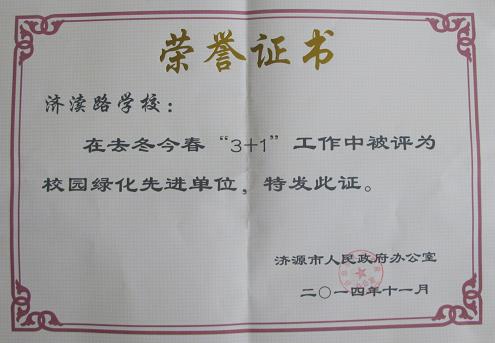 荣誉证书
济渎路学校：
在去冬今春“3+1”工作中被评为
校园绿化先进单位，特发此证。
济源市人民政府办公室
二〇一四年十一月